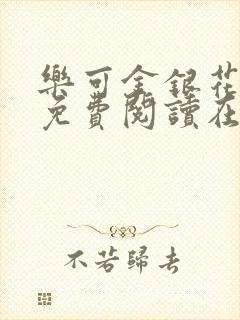 樂可金銀花
免費閱讀在
不若歸去